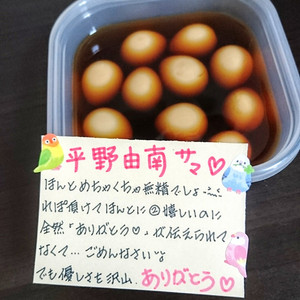 平野由南サマ♡
ほんとめちゃくちゃ無精でしょ…
れば頂けてほんとに②嬉しいのに
全然「ありがとう♡」が伝えられて
なくて…ごめんなさい
でも優しさも沢山ありがとう♡